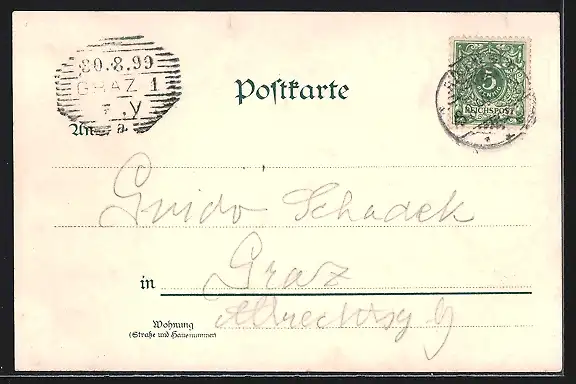 30.8.99
GRAZ 1
Postkarte
5
REICHSPOST
An
Guido Schadek
in Graz
Wohnung
(Straße und Hausnummer)